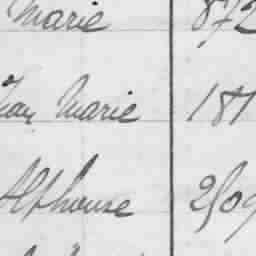 Marie 872
Jean Marie 181
Alphonse 2509